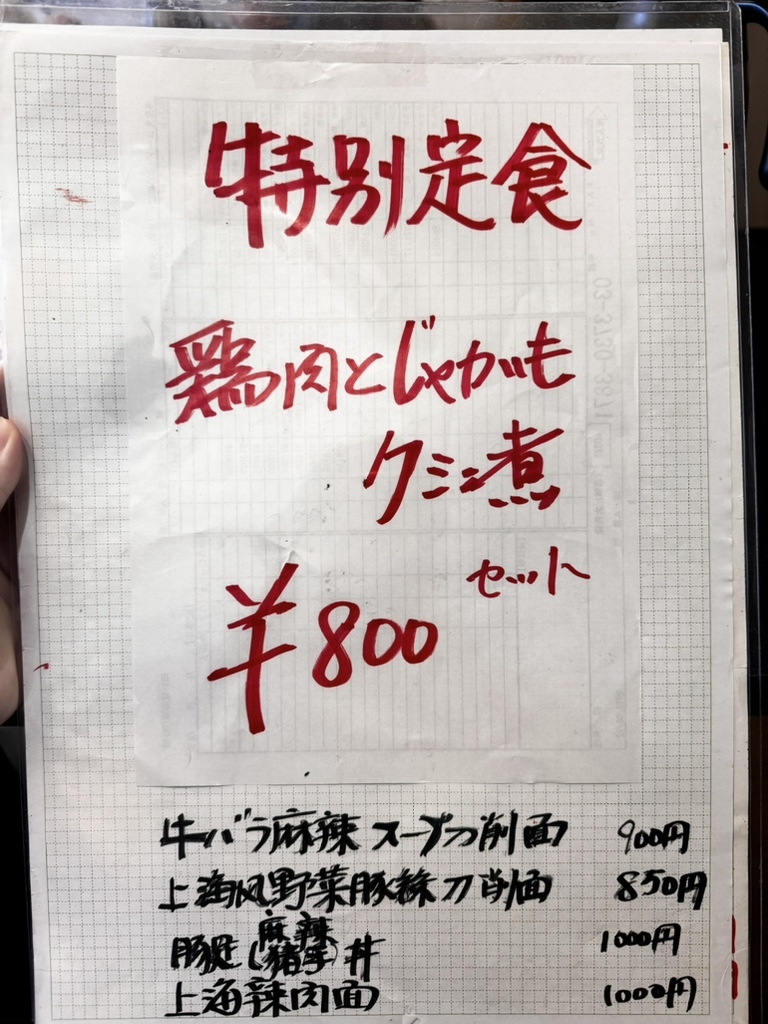 特別定食
鶏肉とじゃがいも
クミン煮
セット
¥800
牛バラ麻辣スープ刀削面 900円
上海风野菜豚絲刀削面 850円
麻辣
豚足(猪手)丼 1000円
上海辣肉面 1000円
03-3730-3871